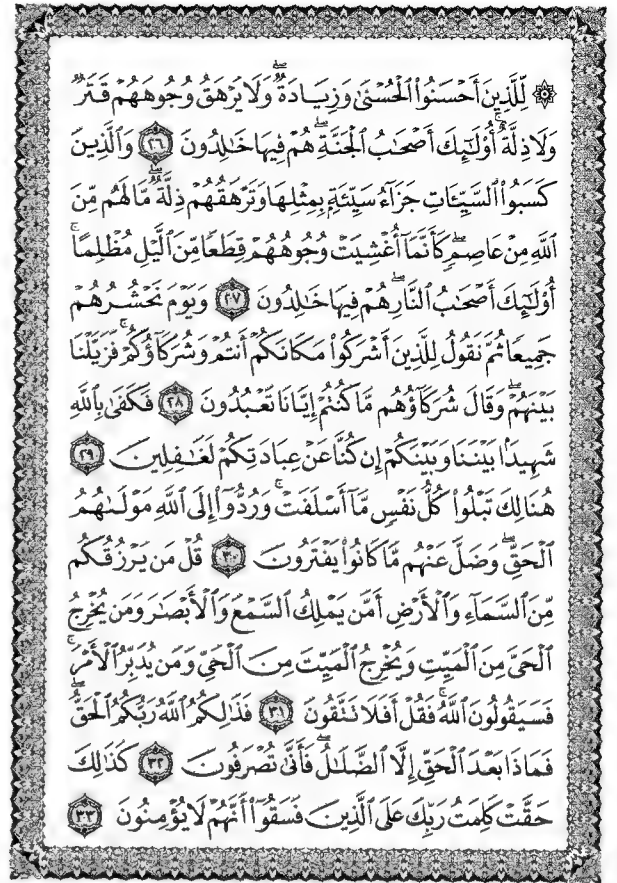 ۞ لِّلَّذِينَ أَحْسَنُوا۟ ٱلْحُسْنَىٰ وَزِيَادَةٌ ۖ وَلَا يَرْهَقُ وُجُوهَهُمْ قَتَرٌ
وَلَا ذِلَّةٌ ۚ أُو۟لَٰٓئِكَ أَصْحَٰبُ ٱلْجَنَّةِ ۖ هُمْ فِيهَا خَٰلِدُونَ ۝٢٦ وَٱلَّذِينَ
كَسَبُوا۟ ٱلسَّيِّـَٔاتِ جَزَآءُ سَيِّئَةٍۭ بِمِثْلِهَا وَتَرْهَقُهُمْ ذِلَّةٌ ۖ مَّا لَهُم مِّنَ
ٱللَّهِ مِنْ عَاصِمٍ ۖ كَأَنَّمَآ أُغْشِيَتْ وُجُوهُهُمْ قِطَعًا مِّنَ ٱلَّيْلِ مُظْلِمًا ۚ
أُو۟لَٰٓئِكَ أَصْحَٰبُ ٱلنَّارِ ۖ هُمْ فِيهَا خَٰلِدُونَ ۝٢٧ وَيَوْمَ نَحْشُرُهُمْ
جَمِيعًا ثُمَّ نَقُولُ لِلَّذِينَ أَشْرَكُوا۟ مَكَانَكُمْ أَنتُمْ وَشُرَكَآؤُكُمْ ۚ فَزَيَّلْنَا
بَيْنَهُمْ ۖ وَقَالَ شُرَكَآؤُهُم مَّا كُنتُمْ إِيَّانَا تَعْبُدُونَ ۝٢٨ فَكَفَىٰ بِٱللَّهِ
شَهِيدًۢا بَيْنَنَا وَبَيْنَكُمْ إِن كُنَّا عَنْ عِبَادَتِكُمْ لَغَٰفِلِينَ ۝٢٩
هُنَالِكَ تَبْلُوا۟ كُلُّ نَفْسٍ مَّآ أَسْلَفَتْ ۚ وَرُدُّوٓا۟ إِلَى ٱللَّهِ مَوْلَىٰهُمُ
ٱلْحَقِّ ۖ وَضَلَّ عَنْهُم مَّا كَانُوا۟ يَفْتَرُونَ ۝٣٠ قُلْ مَن يَرْزُقُكُم
مِّنَ ٱلسَّمَآءِ وَٱلْأَرْضِ أَمَّن يَمْلِكُ ٱلسَّمْعَ وَٱلْأَبْصَٰرَ وَمَن يُخْرِجُ
ٱلْحَىَّ مِنَ ٱلْمَيِّتِ وَيُخْرِجُ ٱلْمَيِّتَ مِنَ ٱلْحَىِّ وَمَن يُدَبِّرُ ٱلْأَمْرَ ۚ
فَسَيَقُولُونَ ٱللَّهُ ۚ فَقُلْ أَفَلَا تَتَّقُونَ ۝٣١ فَذَٰلِكُمُ ٱللَّهُ رَبُّكُمُ ٱلْحَقُّ ۖ
فَمَاذَا بَعْدَ ٱلْحَقِّ إِلَّا ٱلضَّلَٰلُ ۖ فَأَنَّىٰ تُصْرَفُونَ ۝٣٢ كَذَٰلِكَ
حَقَّتْ كَلِمَتُ رَبِّكَ عَلَى ٱلَّذِينَ فَسَقُوٓا۟ أَنَّهُمْ لَا يُؤْمِنُونَ ۝٣٣